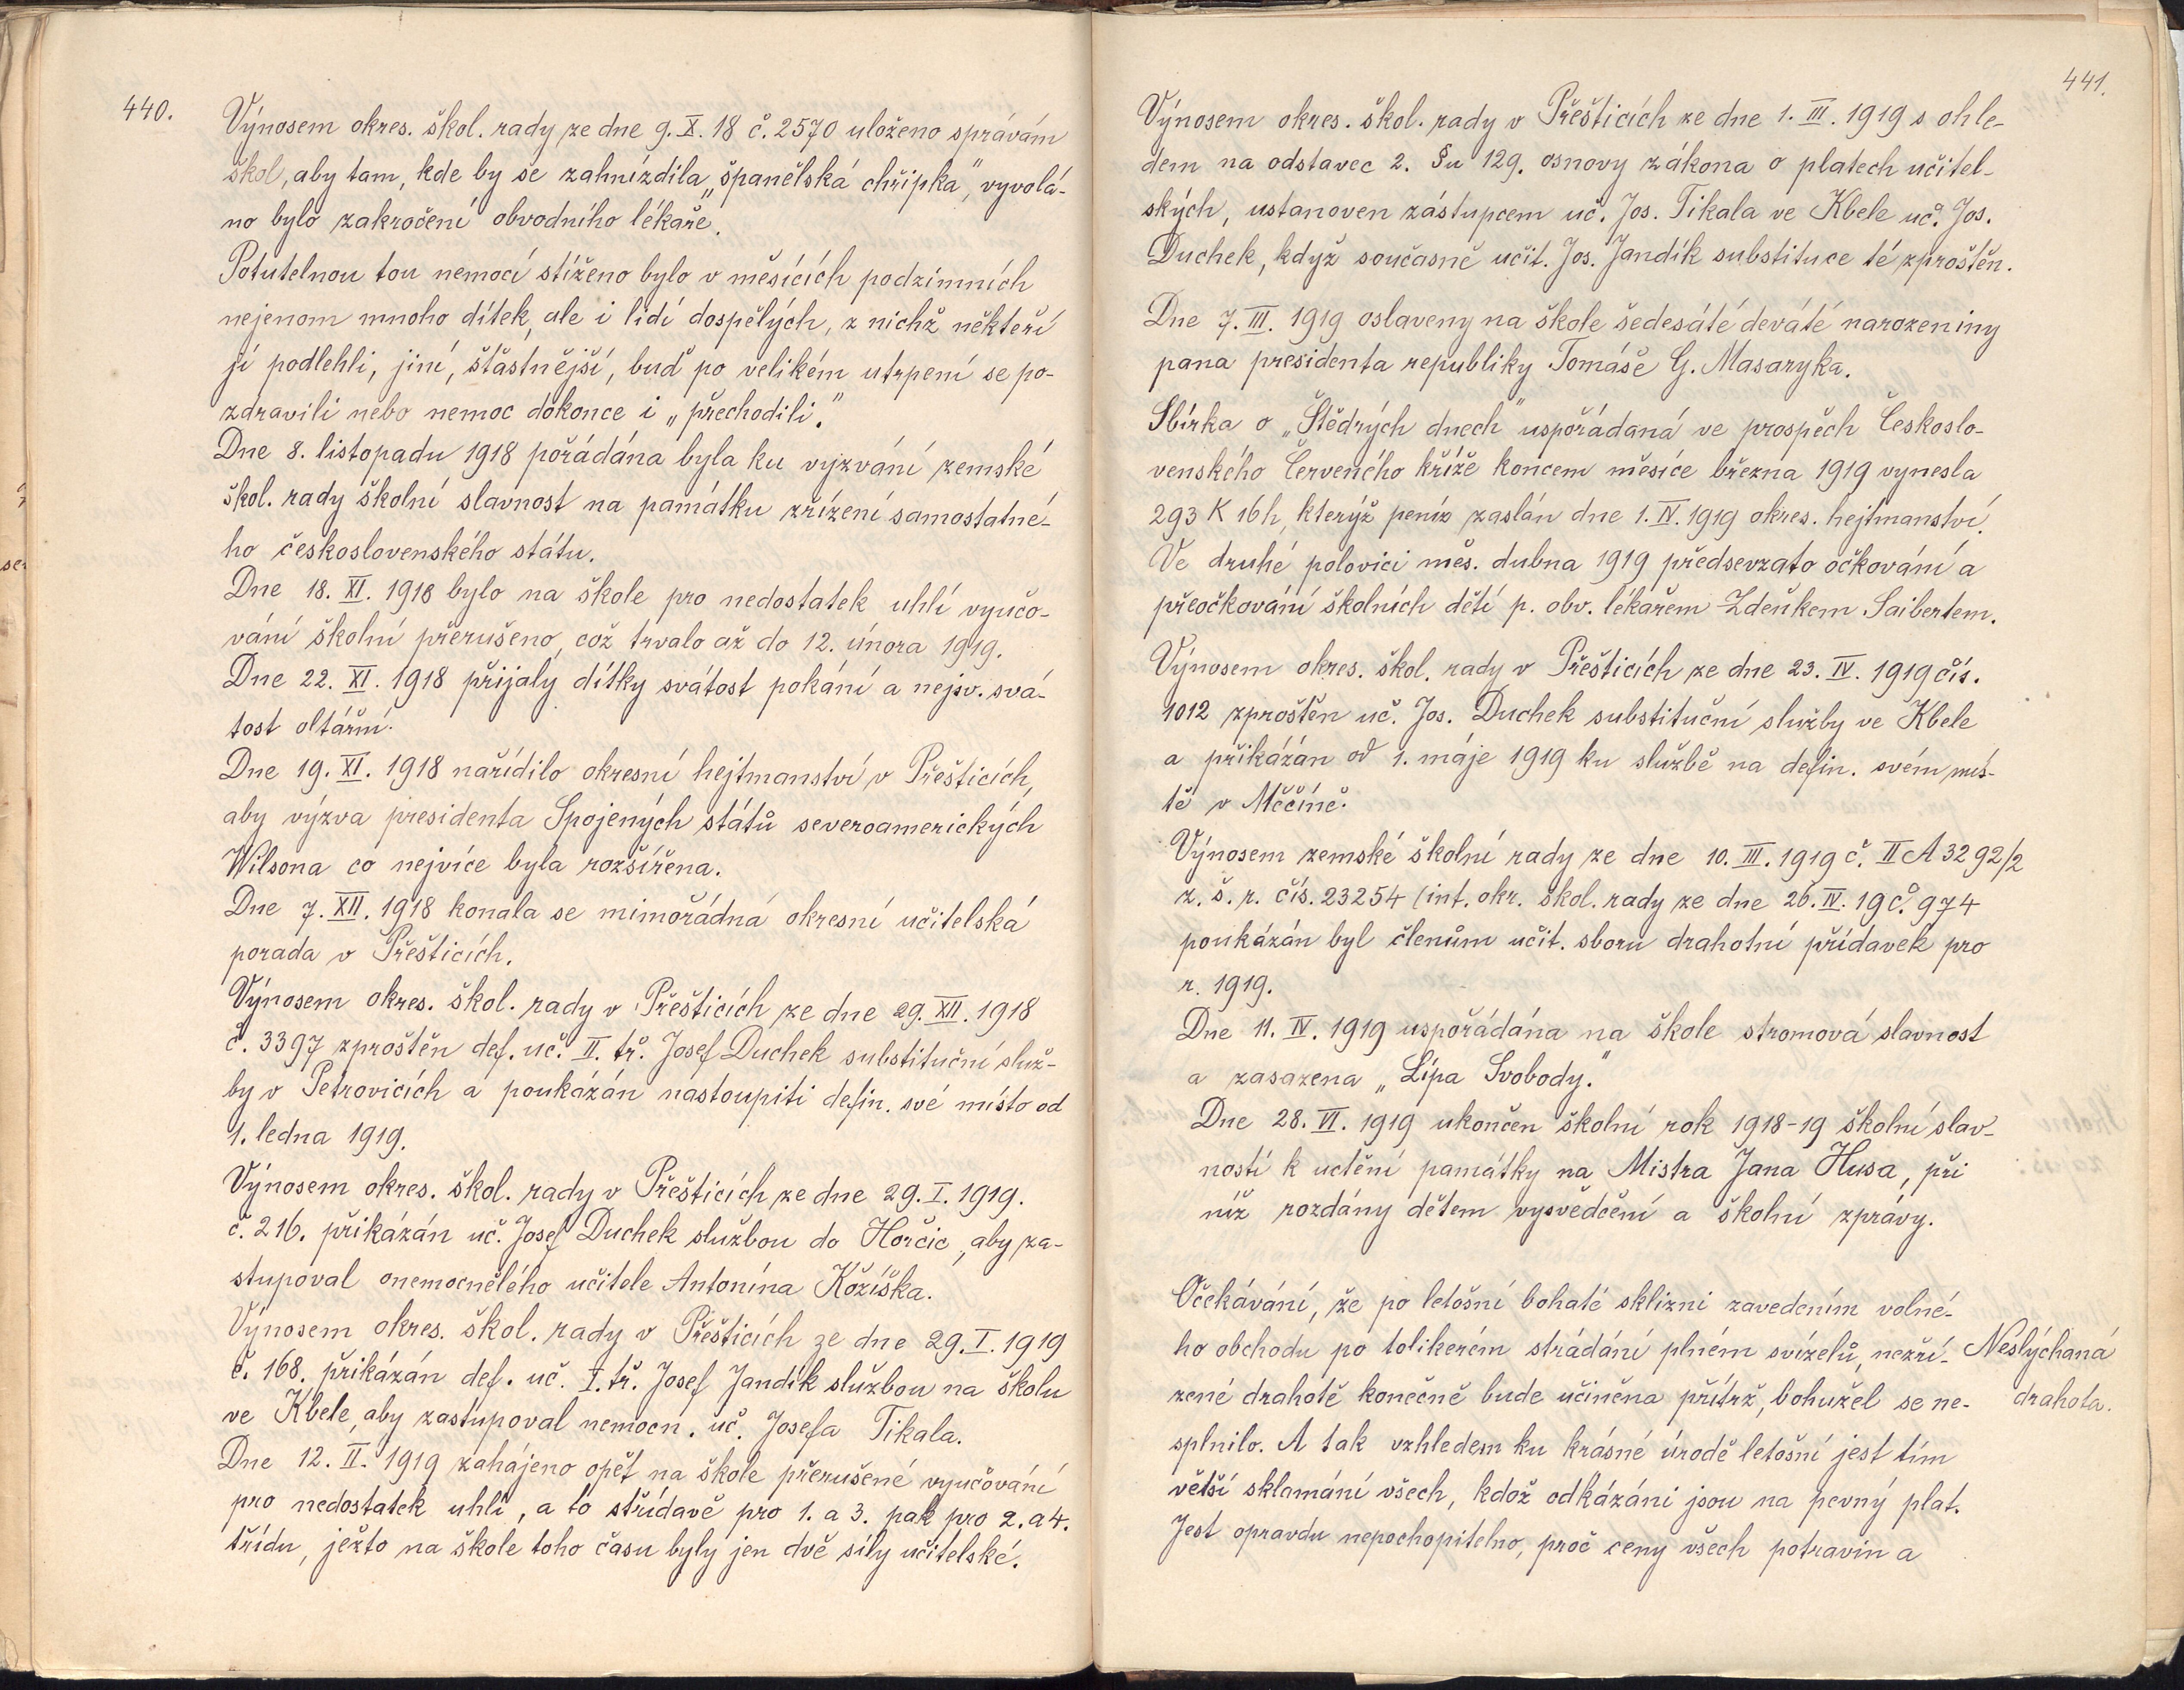 440.
Výnosem okres. škol. rady ze dne 9. X. 18 č. 2570 uloženo správám
škol, aby tam, kde by se zahnízdila „španělská chřipka", vyvolá-
no bylo zakročení obvodního lékaře.
Potutelnou tou nemocí stíženo bylo v měsících podzimních
nejenom mnoho dítek, ale i lidí dospělých, z nichž někteří
jí podlehli, jiní, šťastnější, buď po velikém utrpení se po-
zdravili nebo nemoc dokonce i „přechodili."
Dne 8. listopadu 1918 pořádána byla ku vyzvání zemské
škol. rady školní slavnost na památku zřízení samostatné-
ho československého státu.
Dne 18. XI. 1918 bylo na škole pro nedostatek uhlí vyučo-
vání školní přerušeno, což trvalo až do 12. února 1919.
Dne 22. XI. 1918 přijaly dítky svátost pokání a nejsv. svá-
tost oltářní.
Dne 19. XI. 1918 nařídilo okresní hejtmanství v Přešticích,
aby výzva presidenta Spojených států severoamerických
Wilsona co nejvíce byla rozšířena.
Dne 7. XII. 1918 konala se mimořádná okresní učitelská
porada v Přešticích.
Výnosem okres. škol. rady v Přešticích ze dne 29. XII. 1918
č. 3397 zproštěn def. uč. II. tř. Josef Duchek substituční služ-
by v Petrovicích a poukázán nastoupiti defin. své místo od
1. ledna 1919.
Výnosem okres. škol. rady v Přešticích ze dne 29. I. 1919.
č. 216. přikázán uč. Josef Duchek službou do Horčic, aby za-
stupoval onemocnělého učitele Antonína Kožíška.
Výnosem okres. škol. rady v Přešticích ze dne 29. I. 1919
č. 168. přikázán def. uč. I. tř. Josef Jandík službou na školu
ve Kbele, aby zastupoval nemocn. uč. Josefa Tikala.
Dne 12. II. 1919 zahájeno opět na škole přerušené vyučování
pro nedostatek uhlí, a to střídavě pro 1. a 3. pak pro 2. a 4.
třídu, ježto na škole toho času byly jen dvě síly učitelské.
441.
Výnosem okres. škol. rady v Přešticích ze dne 1. III. 1919 s ohle-
dem na odstavec 2. §u 129. osnovy zákona o platech učitel-
ských, ustanoven zástupcem uč. Jos. Tikala ve Kbele uč. Jos.
Duchek, když současně učit. Jos. Jandík substituce té zproštěn.
Dne 7. III. 1919 oslaveny na škole šedesáté deváté narozeniny
pana presidenta republiky Tomáše G. Masaryka.
Sbírka o „Štědrých dnech" uspořádaná ve prospěch Českoslo-
venského Červeného kříže koncem měsíce března 1919 vynesla
293 K 16 h, kterýž peníz zaslán dne 1. IV. 1919 okres. hejtmanství.
Ve druhé polovici měs. dubna 1919 předsevzato očkování a
přeočkování školních dětí p. obv. lékařem Zdeňkem Saibertem.
Výnosem okres. škol. rady v Přešticích ze dne 23. IV. 1919 čís.
1012 zproštěn uč. Jos. Duchek substituční služby ve Kbele
a přikázán od 1. máje 1919 ku službě na defin. svém mís-
tě v Měčíně.
Výnosem zemské školní rady ze dne 10. III. 1919 č. II A 3292/2
z. š. r. čís. 23254 (int. okr. škol. rady ze dne 26. IV. 19 č. 974
poukázán byl členům učit. sboru drahotní přídavek pro
r. 1919.
Dne 11. IV. 1919 uspořádána na škole stromová slavnost
a zasazena „Lípa Svobody."
Dne 28. VI. 1919 ukončen školní rok 1918-19 školní slav-
ností k uctění památky na Mistra Jana Husa, při
níž rozdány dětem vysvědčení a školní zprávy.
Očekávání, že po letošní bohaté sklizni zavedením volné-
ho obchodu po tolikerém strádání plném svízelů, nezří-
zené drahotě konečně bude učiněna přítrž, bohužel se ne-
splnilo. A tak vzhledem ku krásné úrodě letošní jest tím
větší sklamání všech, kdož odkázáni jsou na pevný plat.
Jest opravdu nepochopitelno, proč ceny všech potravin a
Neslýchaná
drahota.